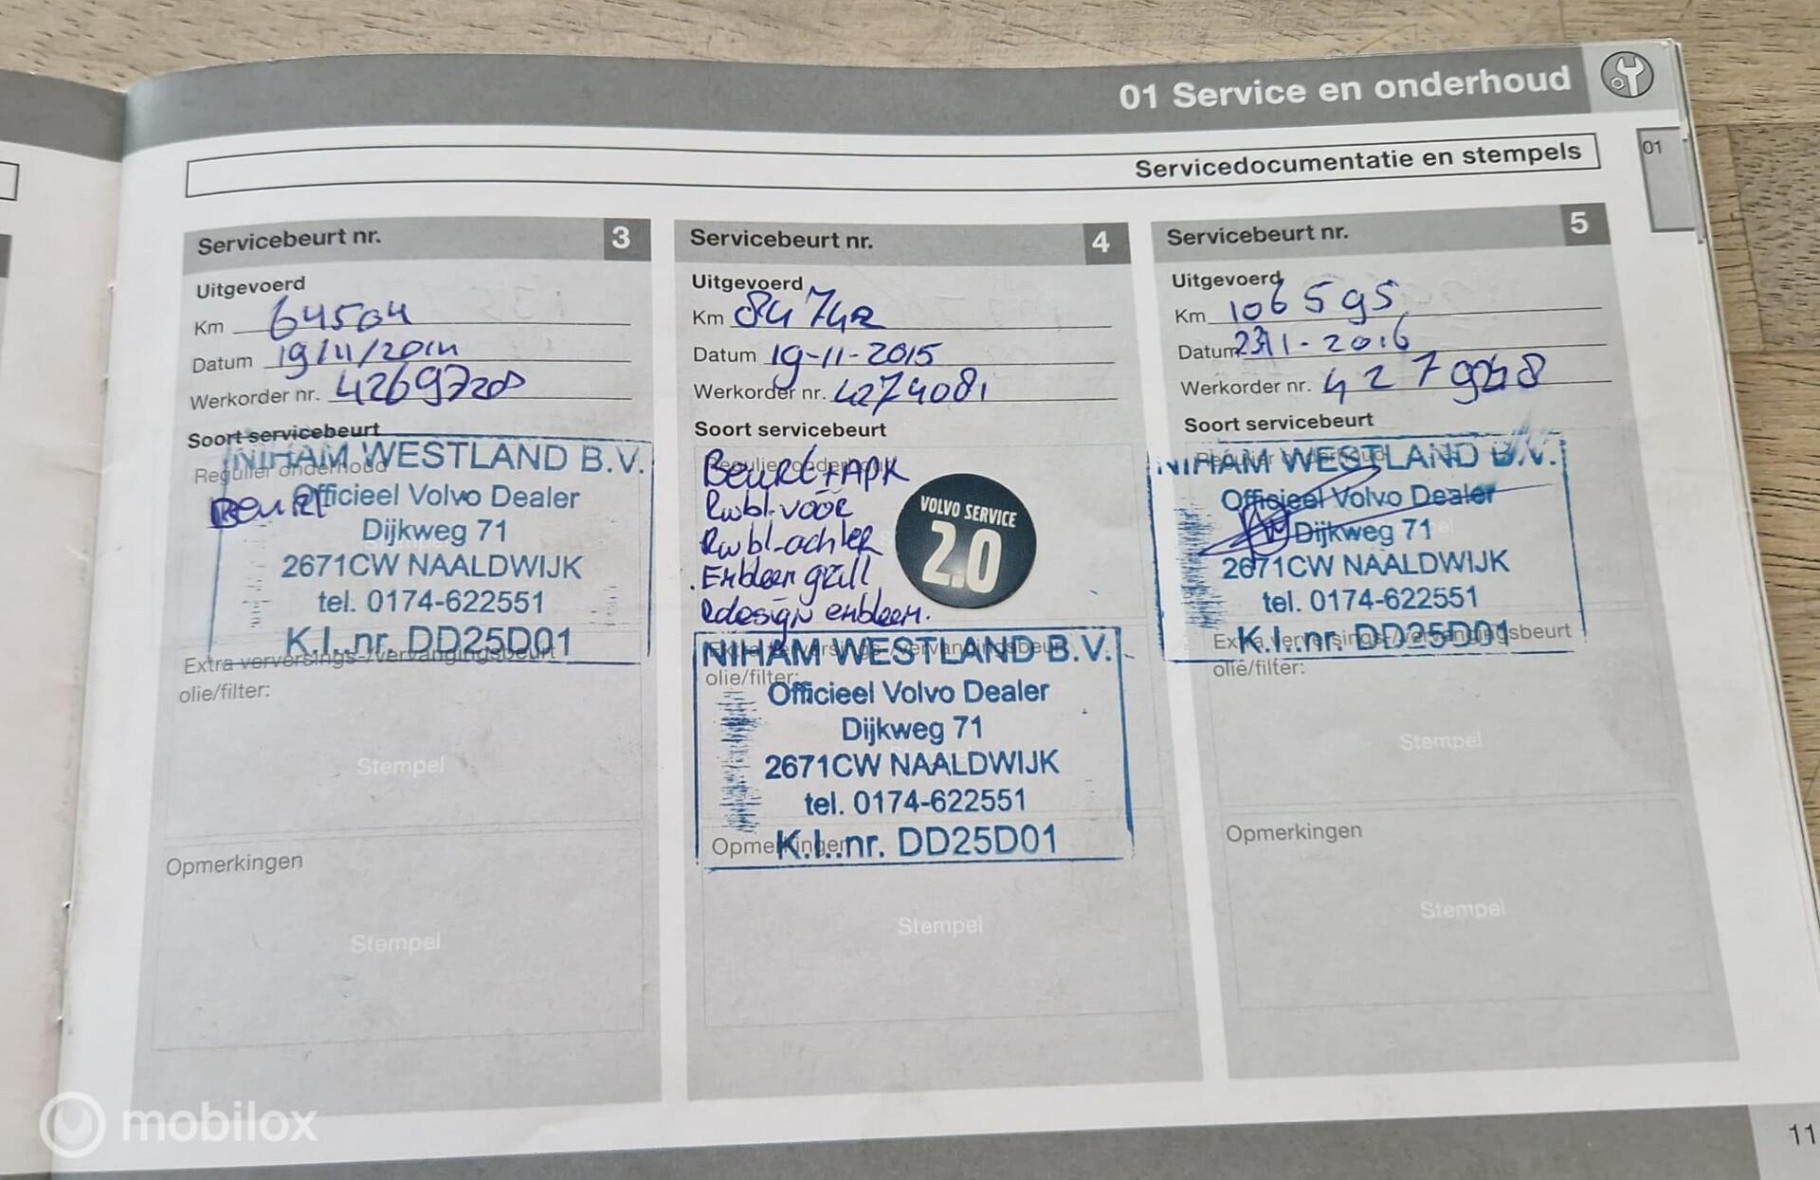 01 Service en onderhoud
Servicedocumentatie en stempels
01
Servicebeurt nr. 3
Uitgevoerd
Km 64504
Datum 19/11/2014
Werkorder nr. 4269728
Soort servicebeurt
Regulier onderhoud
Beurt
NIHAM WESTLAND B.V.
Officieel Volvo Dealer
Dijkweg 71
2671CW NAALDWIJK
tel. 0174-622551
K.I..nr. DD25D01
Extra verversings-/vervangingsbeurt
olie/filter:
Stempel
Opmerkingen
Stempel
Servicebeurt nr. 4
Uitgevoerd
Km 84742
Datum 19-11-2015
Werkorder nr. 4274081
Soort servicebeurt
Beurt + APK
Rwbl. voor
Rwbl-achter
Embleem grill
Rdesign embleem.
VOLVO SERVICE
2.0
NIHAM WESTLAND B.V.
olie/filter:
Officieel Volvo Dealer
Dijkweg 71
2671CW NAALDWIJK
tel. 0174-622551
Opmerkingen
K.I..nr. DD25D01
Stempel
Servicebeurt nr. 5
Uitgevoerd
Km 106595
Datum 23-11-2016
Werkorder nr.
Soort servicebeurt
NIHAM WESTLAND B.V.
Officieel Volvo Dealer
Dijkweg 71
2671CW NAALDWIJK
tel. 0174-622551
K.I..nr. DD25D01
Extra verversings-/vervangingsbeurt
olie/filter:
Stempel
Opmerkingen
Stempel
mobilox
11